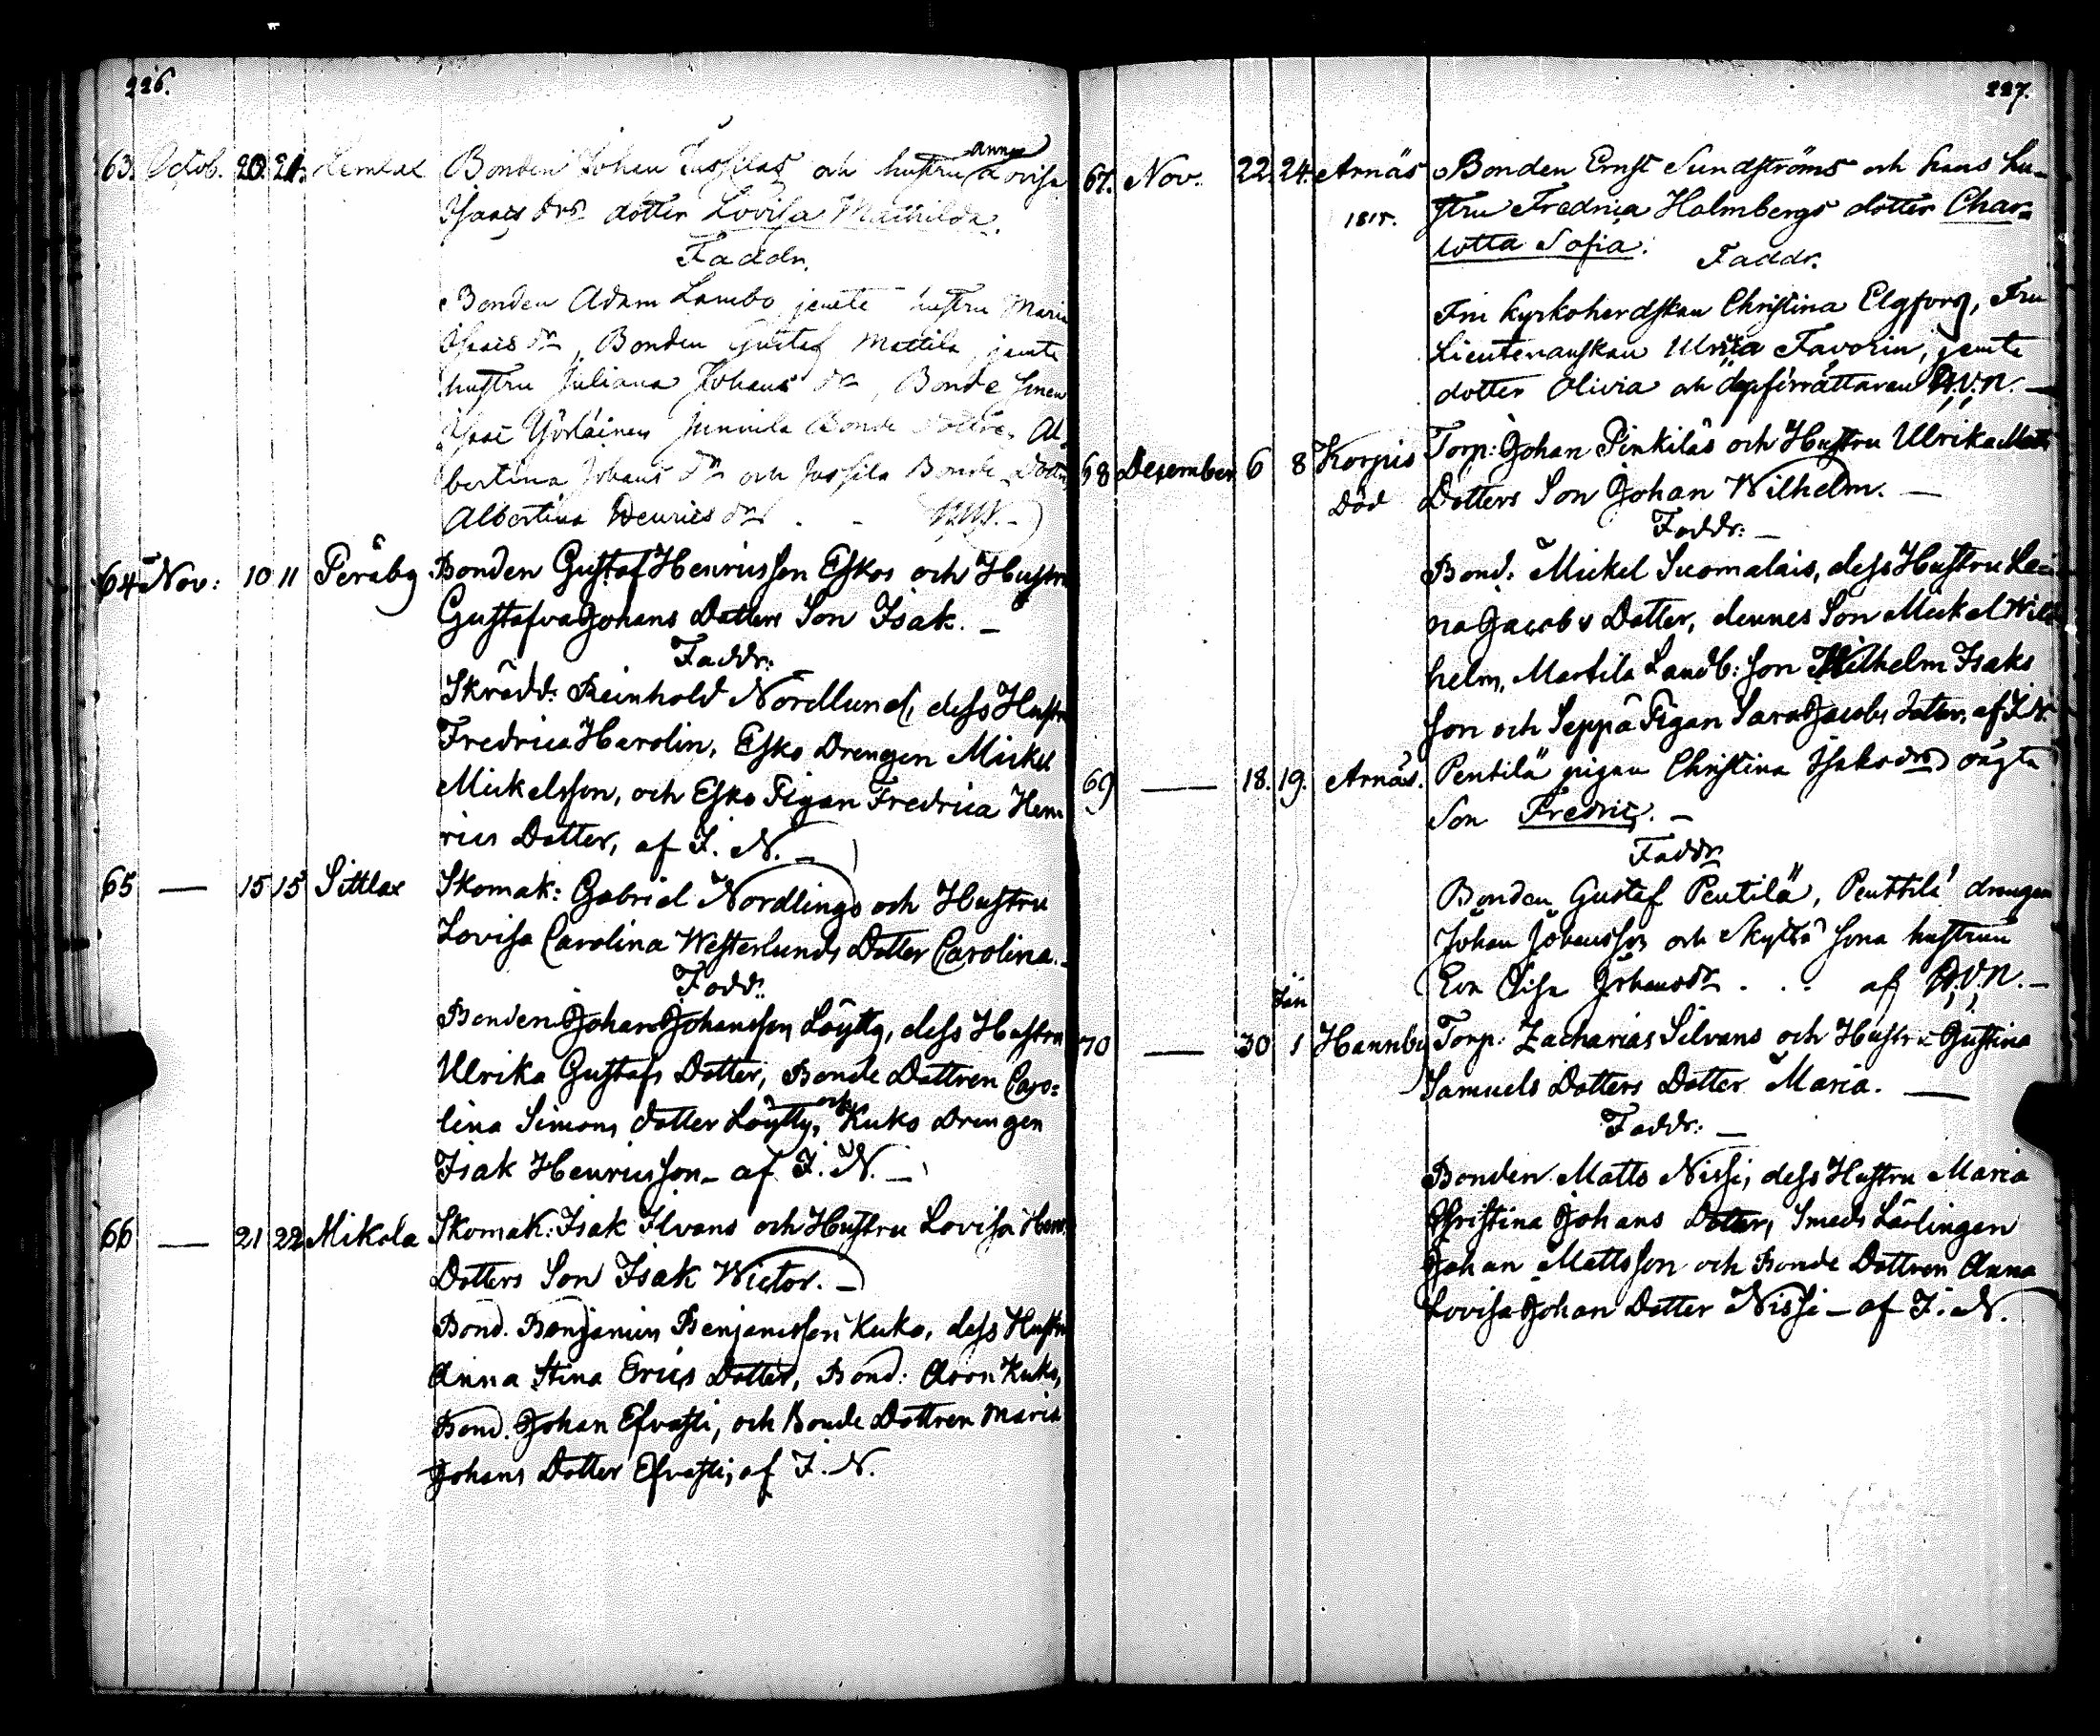 226.
63. Octob. 20. 21. Hemlax Bonden Johan Jussilas och hustru Anna Lovisa
Isaacs drs dotter Lovisa Mathilda.
Faddr.
Bonden Adam Lambo jemte hustru Maria
Isaacs dr, Bonden Gustaf Mattila, jemte
hustru Juliana Johans dr, Bonde Sonen
Isac Yörläinen Junnila Bonde Dottren Al-
bertina Johans dr och Jussila Bonde Dottr
Albertina Henrics dr
64 Nov: 10 11 Peräby Bonden Gustaf Henricsson Eskos och Hustru
Gustafva Johans Dotters Son Isak. —
Faddr:
Skrädd: Reinhold Nordlund, dess Hustru
Fredrica Harolin, Esko Drengen Mickel
Mickelsson, och Esko Pigan Fredrica Hen
rics Dotter, af I. N. —
65 — 15 15 Sittlax Skomak: Gabriel Nordlings och Hustru
Lovisa Carolina Westerlunds Dotter Carolina. —
Fadd:
Bonden Johan Johansson Löytty, dess Hustru
Ulrika Gustafs Dotter, Bonde Dottren Caro=
lina Simons dotter Löytty, och Kuko Drengen
Isak Henricsson — af I. N. —
66 — 21 22 Mikola Skomak: Isak Ilvans och Hustru Lovisa Henr.
Dotters Son Isak Wictor. —
Bond. Benjamin Benjamsson Kuko, dess Hustru
Anna Stina Erics Dotter, Bond: Aron Kuko,
Bond. Johan Efvasti, och Bonde Dottren Maria
Johans Dotter Efvasti, af I. N.
227.
67. Nov. 22. 24. Arnäs Bonden Ernst Sundströms och hans hu-
1815. stru Fredrica Holmbergs dotter Char=
lotta Sofia. Faddr.
Fru Kyrkoherdskan Christina Elgforg, Fru
Lieutenanskan Ulrica Favorin, jemte
dotter Olivia och dopförrättaren A.V.N. —
68 Desember 6 8 Korpis Torp: Johan Pinkiläs och Hustru Ulrika Matts
Död Dotters Son Johan Wilhelm. —
Faddr: —
Bond: Mickel Suomalais, dess Hustru Le=
na Jacobs Dotter, dennes Son Mickel Wil
helm, Martila Landb: Son Wilhelm Isaks
Son och Seppä Pigan Sara Jacobs dotter, af I. N.
69 — 18. 19. Arnäs. Pentilä pigan Christina Isaksdrs oägta
Son Fredric. —
Faddr
Bonden Gustaf Pentilä, Penttilä drengen
Johan Johansson och Skyttä Sona hustrun
Eva Lisa Johansdr . . . af A.V.N. —
Jan
70 — 30 1 Hannby Torp: Zacharias Silvans och Hustru Gustina
Samuels Dotters Dotter Maria. —
Faddr: —
Bonden Matts Nissi, dess Hustru Maria
Christina Johans Dotter, Smeds Lärlingen
Johan Mattsson och Bonde Dottren Anna
Lovisa Johan Dotter Nissi — af I. N.